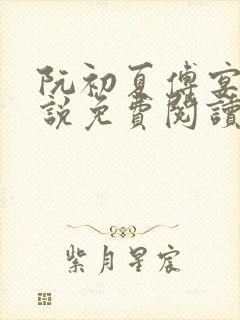 阮初夏傅宴
說免費閱讀
紫月星宸